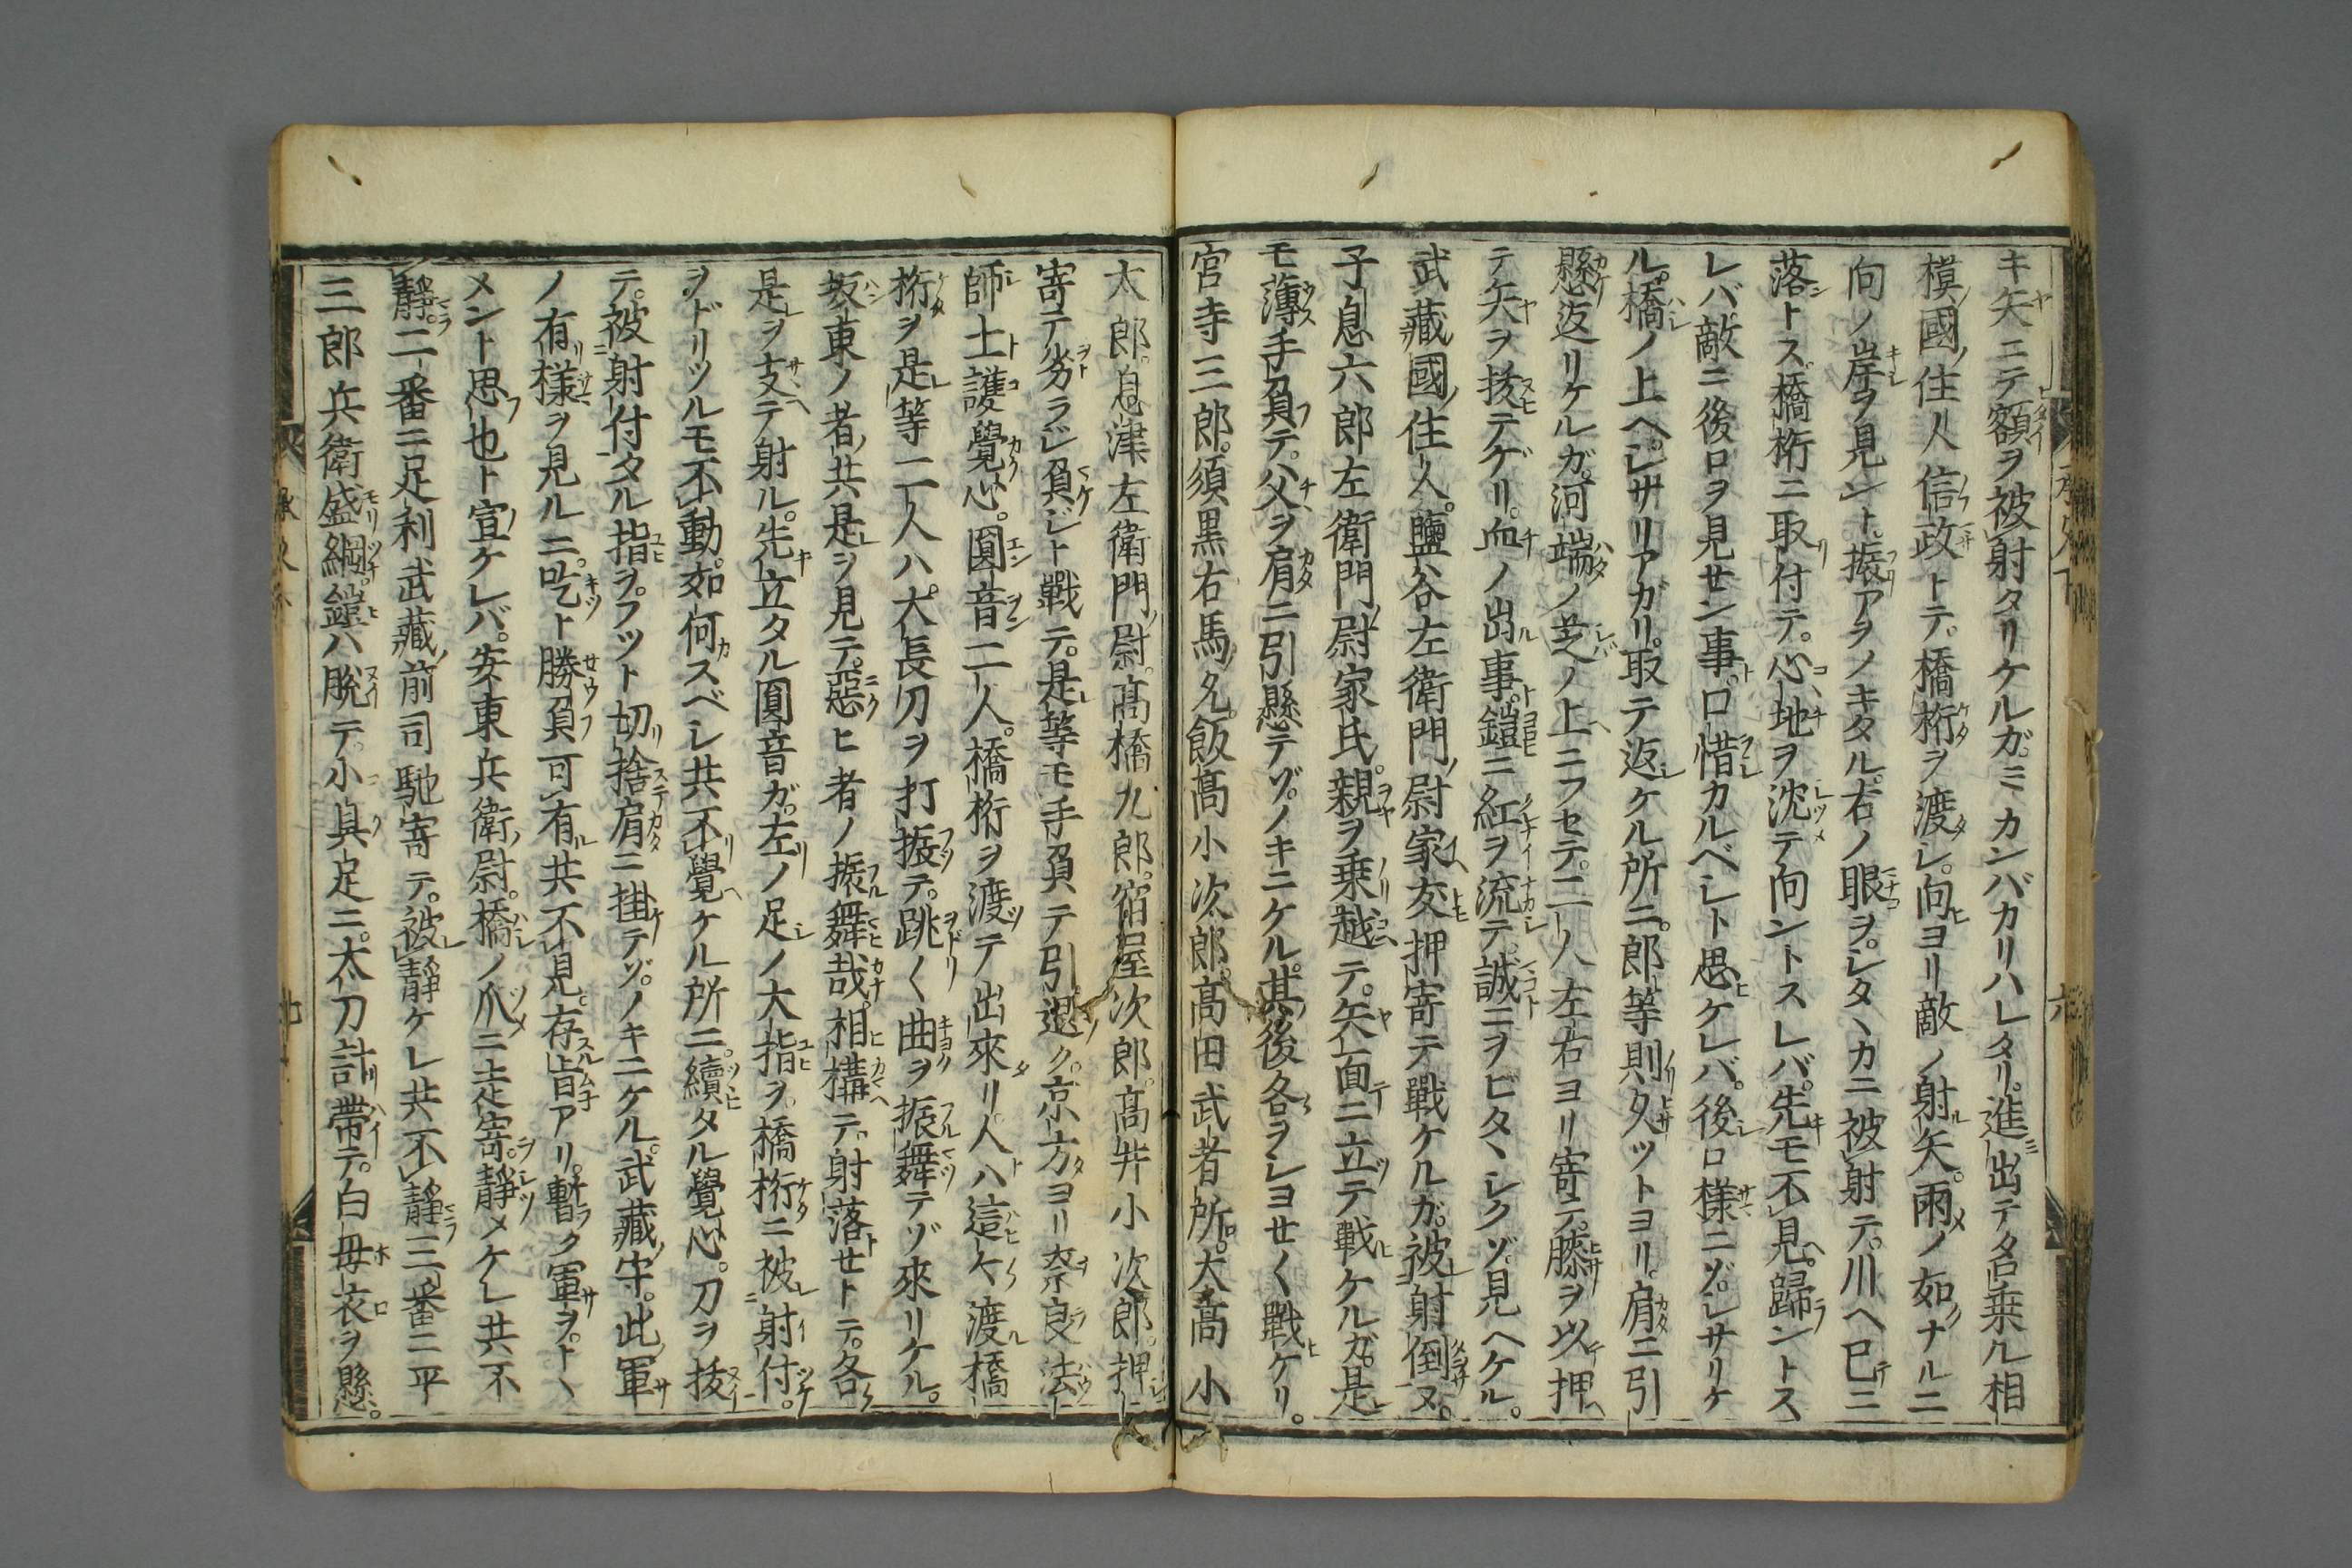 キ矢ニテ額ヲ被射タリケルガミカンバカリハレタリ。進出テ名乗ル相
模國ノ住人信政トテ。橋桁ヲ渡レ。向ヨリ敵ノ射矢。雨ノ如ナルニ
向ノ岸ヲ見ント。振アヲノキタル。右ノ眼ヲ。シタヽカニ被射テ。川ヘ已ニ
落トス。橋桁ニ取付テ。心地ヲ沈テ向ントスレバ。先モ不見。歸ントス
レバ。敵ニ後ロヲ見セン事。口惜カルベシト思ケレバ。後ロ様ニゾ。シサリケ
ル。橋ノ上ヘ。シサリアガリ。取テ返シケル所ニ。郎等則久ツトヨリ。肩ニ引
懸返リケルガ。河端ノ芝ノ上ニフセテ。二人左右ヨリ寄テ。膝ヲ以押ヘ
テ矢ヲ抜テゲリ。血ノ出ル事。鎧ニ紅ヲ流テ。誠ニヲビタヽシクゾ。見ヘケル。
武藏國ノ住人。鹽谷左衛門ノ尉家友押寄テ戰ケルガ。被射倒ヌ。
子息六郎左衛門ノ尉家氏。親ヲ乗越テ。矢面ニ立テ戰ケルガ。是
モ薄手負テ。父ヲ肩ニ引懸テゾ。ノキニケル。其後各ヲシヨせ〱戰ケリ。
宮寺三郎。須黒右馬允。飯髙小次郎。髙田武者所。大髙小
太郎。息津左衛門ノ尉。髙橋九郎。宿屋次郎。髙井小次郎。押
寄テ劣ラジ負ジト戰テ。是等モ手負テ引退ク。京方ヨリ奈良法
師土護覺心。圓音二人。橋桁ヲ渡テ出來リ。人ハ這ケ渡ル橋
桁ヲ是等二人ハ。大長刀ヲ打振テ。跳〱曲ヲ振舞テゾ來リケル。
坂東ノ者共是ヲ見テ。惡ヒ者ノ振舞哉。相構テ。射落せトテ。各
是ヲ支テ射ル。先立タル圓音ガ。左ノ足ノ大指ヲ。橋桁ニ被射付。
ヲドリツルモ不動。如何スベシ共不覺ケル所ニ。續タル覺心。刀ヲ抜
テ。被射付タル指ヲ。フツト切捨肩ニ掛テゾ。ノキニケル。武藏守。此軍
ノ有様ヲ見ルニ。吃ト勝負可有共不見。存旨アリ。暫ク軍ヲ。トヽ
メント思也ト宣ケレバ。安東兵衛ノ尉。橋ノ爪ニ走寄。靜メケレ共不
靜。二番ニ足利武藏前司馳寄テ。被靜ケレ共不靜。三番ニ平
三郎兵衛盛綱。鎧ハ脱テ。小具足ニ。太刀計帶テ。白母衣ヲ懸。